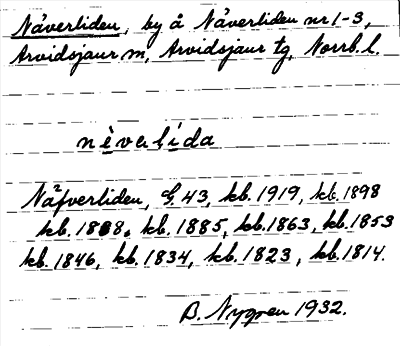 Näverliden, by å Näverliden nr 1-3,
Arvidsjaur m, Arvidsjaur tg, Norrb. l.
nèverlìda
Näfverliden, G. 43, kb. 1919, kb. 1898
kb. 1888. kb. 1885, kb. 1863, kb. 1853
kb. 1846, kb. 1834, kb. 1823, kb. 1814.
B. Nygren 1932.